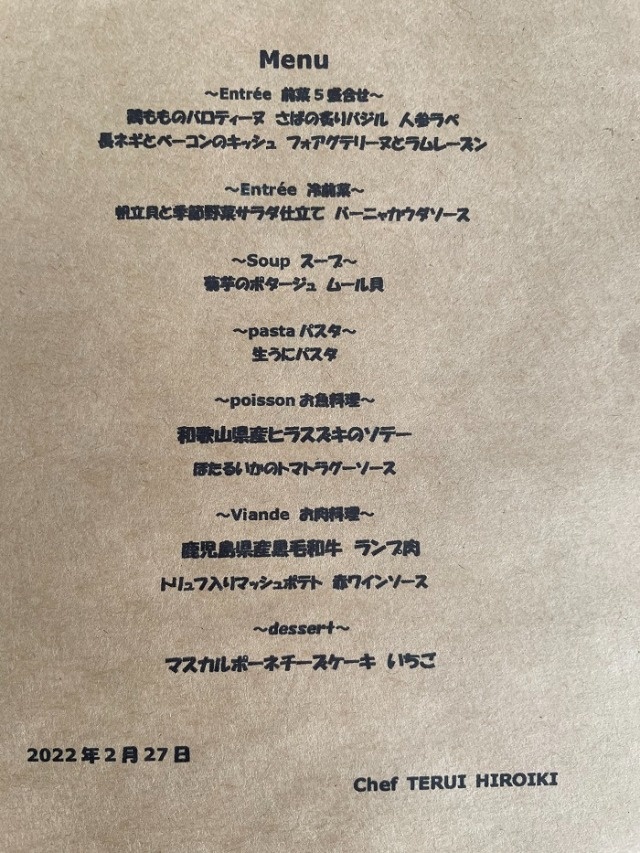 Menu
～Entrée 前菜5盛合せ～
鶏もものバロティーヌ さばの炙りバジル 人参ラペ
長ネギとベーコンのキッシュ フォアグテリーヌとラムレーズン
～Entrée 冷前菜～
帆立貝と季節野菜サラダ仕立て バーニャカウダソース
～Soup スープ～
菊芋のポタージュ ムール貝
～pasta パスタ～
生うにパスタ
～poisson お魚料理～
和歌山県産ヒラスズキのソテー
ほたるいかのトマトラグーソース
～Viande お肉料理～
鹿児島県産黒毛和牛 ランプ肉
トリュフ入りマッシュポテト 赤ワインソース
～dessert～
マスカルポーネチーズケーキ いちご
2022年2月27日
Chef TERUI HIROIKI